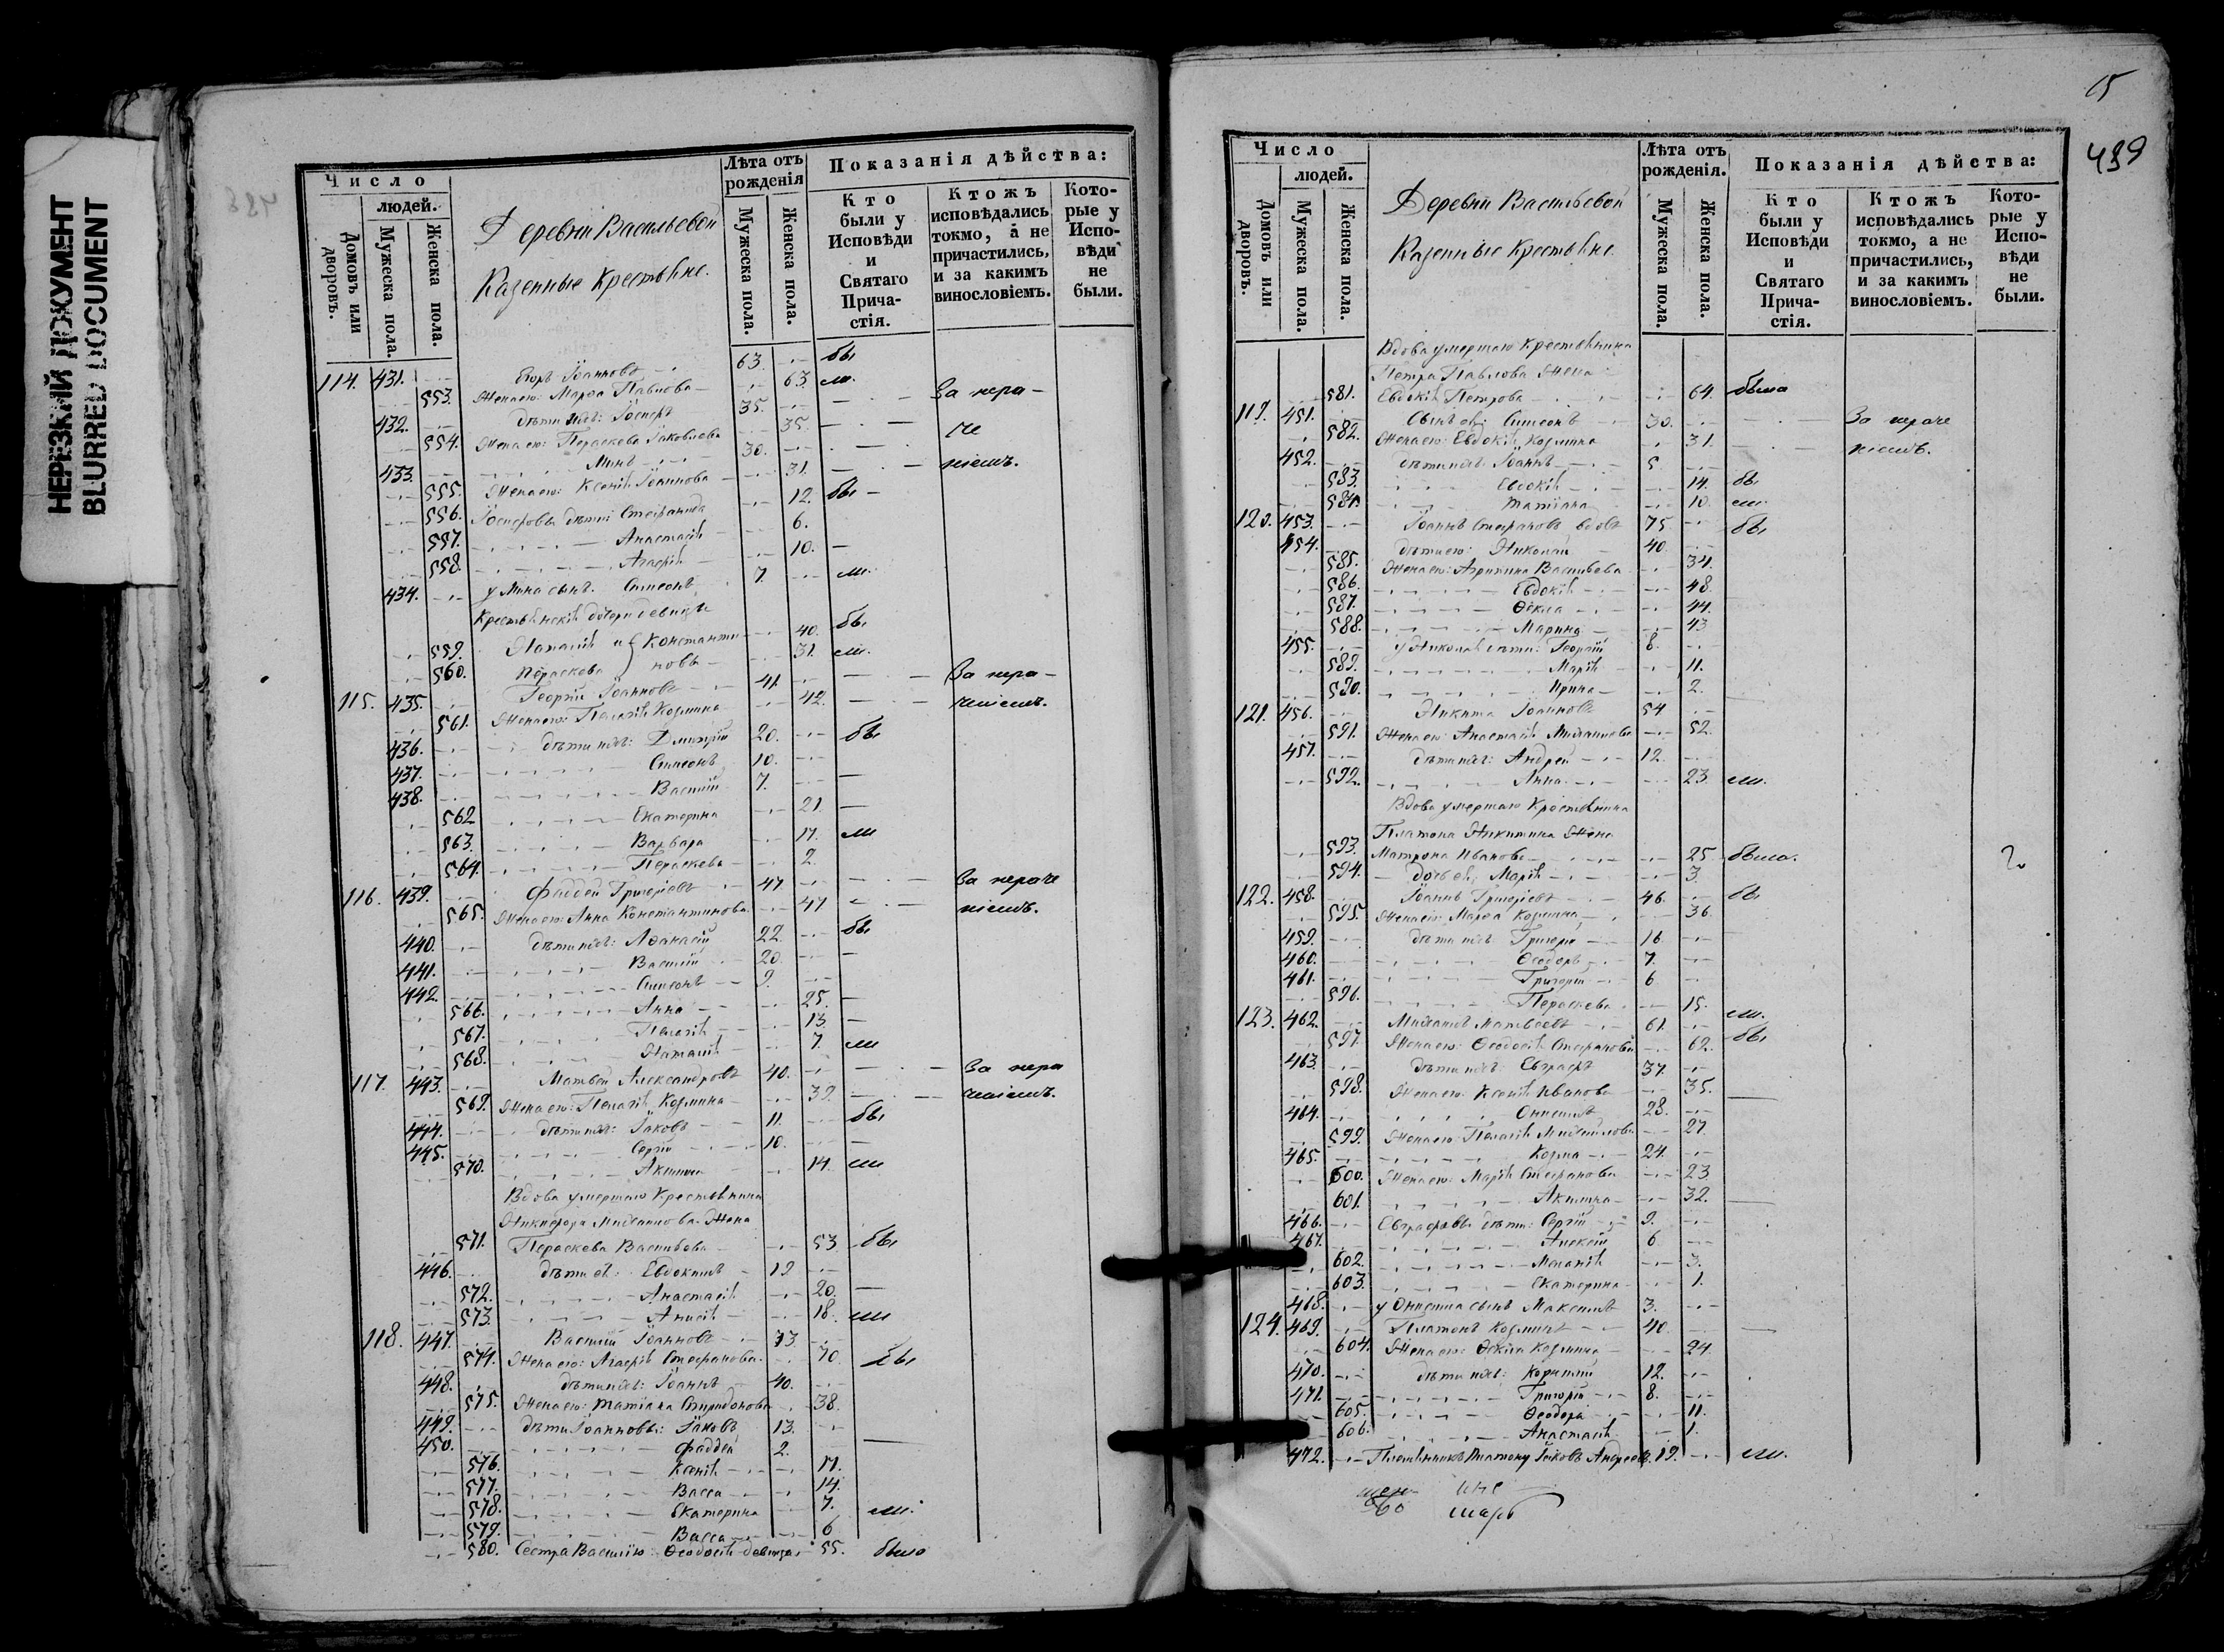 НЕРЕЗКИЙ ДОКУМЕНТ
BLURRED DOCUMENT
Число
людей.
Домовъ или дворовъ.
Мужеска пола.
Женска пола.
Деревни Васильевой
Казенные Крестьяне.
Лѣта отъ рожденія
Мужеска пола.
Женска пола.
Показанія дѣйства:
Кто были у Исповѣди и Святаго Прича-стія.
Ктожъ исповѣдались токмо, а не причастились, и за какимъ винословіемъ.
Кото-рые у Испо-вѣди не были.
114. 431. Егоръ Іоанновъ 63. бы
553. Жена его: Марѳа Павлова 63. ли. За нера-
432. дѣти ихъ: Іосифъ 35.
554. Жена его: Параскева Іаковлева 35. че
433. Минъ 30.
555. Жена его: Ксенія Іоаннова 31. ніемъ.
556. Іосифовы дѣти: Стефанида 12. бы
557. Анастасія 6.
558. Агафія 10.
434. у Мина сынъ. Симеонъ 7. ли.
Крестьянскія дочери девицы
559. Наталія и Константи- 40. бы
560. Параскева новы 31. ли.
115. 435. Георгій Іоанновъ 41. За нера-
561. Жена его: Пелагія Козмина 42. ченіемъ.
436. дѣти ихъ: Дмитрій 20. бы
437. Симеонъ 10.
438. Василій 7.
562 Екатерина 21.
563. Варвара 17. ли
564. Параскева 2.
116. 439. Фаддей Григорьевъ 47 За нераче
565. Жена его: Анна Константинова 47 ніемъ.
440. дѣти ихъ: Аѳанасій 22. бы
441. Василій 20.
442. Симеонъ 9.
566. Анна 25.
567. Пелагія 13.
568. Наталія 7. ли
117. 443. Матвей Александровъ 40. За нера
569. Жена его: Пелагія Козмина 39. ченіемъ.
444. дѣти ихъ: Іаковъ 11. бы
445. Сергій 10.
570. Акилина 14. ли
Вдова умершаго Крестьянина
Никифора Михаилова Жена
571. Параскева Васильева 53. бы
446. дѣти ея: Евдокимъ 12
572. Анастасія 20.
573. Анисія 18. ли
118. 447. Василій Іоанновъ 73
574. Жена его: Агафія Стефанова 70. бы
448. дѣти ихъ: Іоаннъ 40.
575. Жена его: Татіана Спиридонова 38.
449. дѣти Іоанновы: Іаковъ 13.
450. Фаддей 2.
576. Ксенія 17.
577. Васса 14.
578. Екатерина 7. ли.
579. Васса 6
580. Сестра Василію: Ѳеодосія девица 55. была
15
439
Число
людей.
Домовъ или дворовъ.
Мужеска пола.
Женска пола.
Деревни Васильевой
Казенные Крестьяне.
Лѣта отъ рожденія.
Мужеска пола.
Женска пола.
Показанія дѣйства:
Кто были у Исповѣди и Святаго Прича-стія.
Ктожъ исповѣдались токмо, а не причастились, и за какимъ винословіемъ.
Кото-рые у Испо-вѣди не были.
Вдова умершаго Крестьянина
Петра Павлова Жена
581. Евдокія Петрова 64. была
119. 451. Сынъ ея: Симеонъ 30. За нераче
582. Жена его: Евдокія Козмина 31. ніемъ.
452. дѣти ихъ: Іоаннъ 5
583. Евдокія 14. бы
584. Татіана 10. ли
120. 453. Іоаннъ Стефановъ вдовъ 75 бы
454. дѣти его: Николай 40.
585. Жена его: Агрипина Васильева 34.
586. Евдокія 48.
587. Ѳекла 44.
588. Марина 43
455. у Николая дѣти: Георгій 8.
589. Марія 11.
590. Ирина 2.
121. 456. Никита Іоанновъ 54
591. Жена его: Анастасія Михаилова 52.
457. дѣти ихъ: Андрей 12.
592. Анна 23 ли.
Вдова умершаго Крестьянина
Платона Никитина Жена
593. Матрона Иванова 25 была.
594. дочь ея, Марія 3.
122. 458. Іоаннъ Григорьевъ 46. бы
595. Жена его: Марѳа Козмина 36.
459. дѣти ихъ: Григорій 16.
460. Ѳеодоръ 7.
461. Григорій 6
596. Параскева 15. ли.
123. 462. Михаилъ Матвеевъ 61.
597 Жена его: Ѳеодосія Стефанова 62. бы
463. дѣти ихъ: Евграфъ 37.
598. Жена его: Ксенія Иванова 35.
464. Онисимъ 28.
599. Жена его: Пелагія Михаилова 27
465. Козма 24.
600. Жена его: Марія Стефанова 23
601. Акилина 32.
466. Евграфовы дѣти: Сергій 9.
467. Алексій 6
602. Меланія 3.
603. Екатерина 1.
468. у Онисима сынъ Максимъ 3.
124. 469. Платонъ Козминъ 40.
604. Жена его: Ѳекла Козмина 24.
470. дѣти ихъ: 12.
471. Григорій 8.
605. Ѳеодора 11.
606. Анастасія 1.
472. Племянникъ Платону Іаковъ Андреевъ 19. ли.